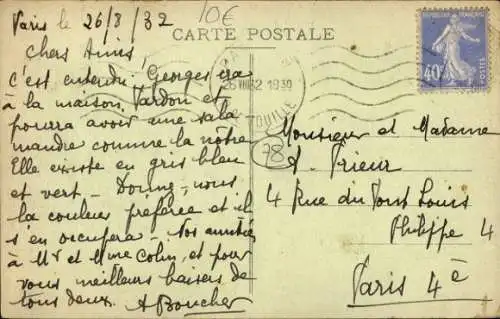 Paris le 26/8/32
10€
CARTE POSTALE
Chers Amis
C'est entendu Georges ira
à la maison Vardon et
pourra avoir une sala
mandre comme la nôtre
Elle existe en gris bleu
et vert - Donnez-nous
la couleur préférée et il
s'en occupera - Nos amitiés
à Mr et Mme Colin, et pour
vous meilleurs baisers de
tous deux. A Boucher
26 VIII 32 1930
POSTES
40c
Monsieur et Madame
A. Prieur
4 Rue du Pont Louis
Philippe 4
Paris 4è
78